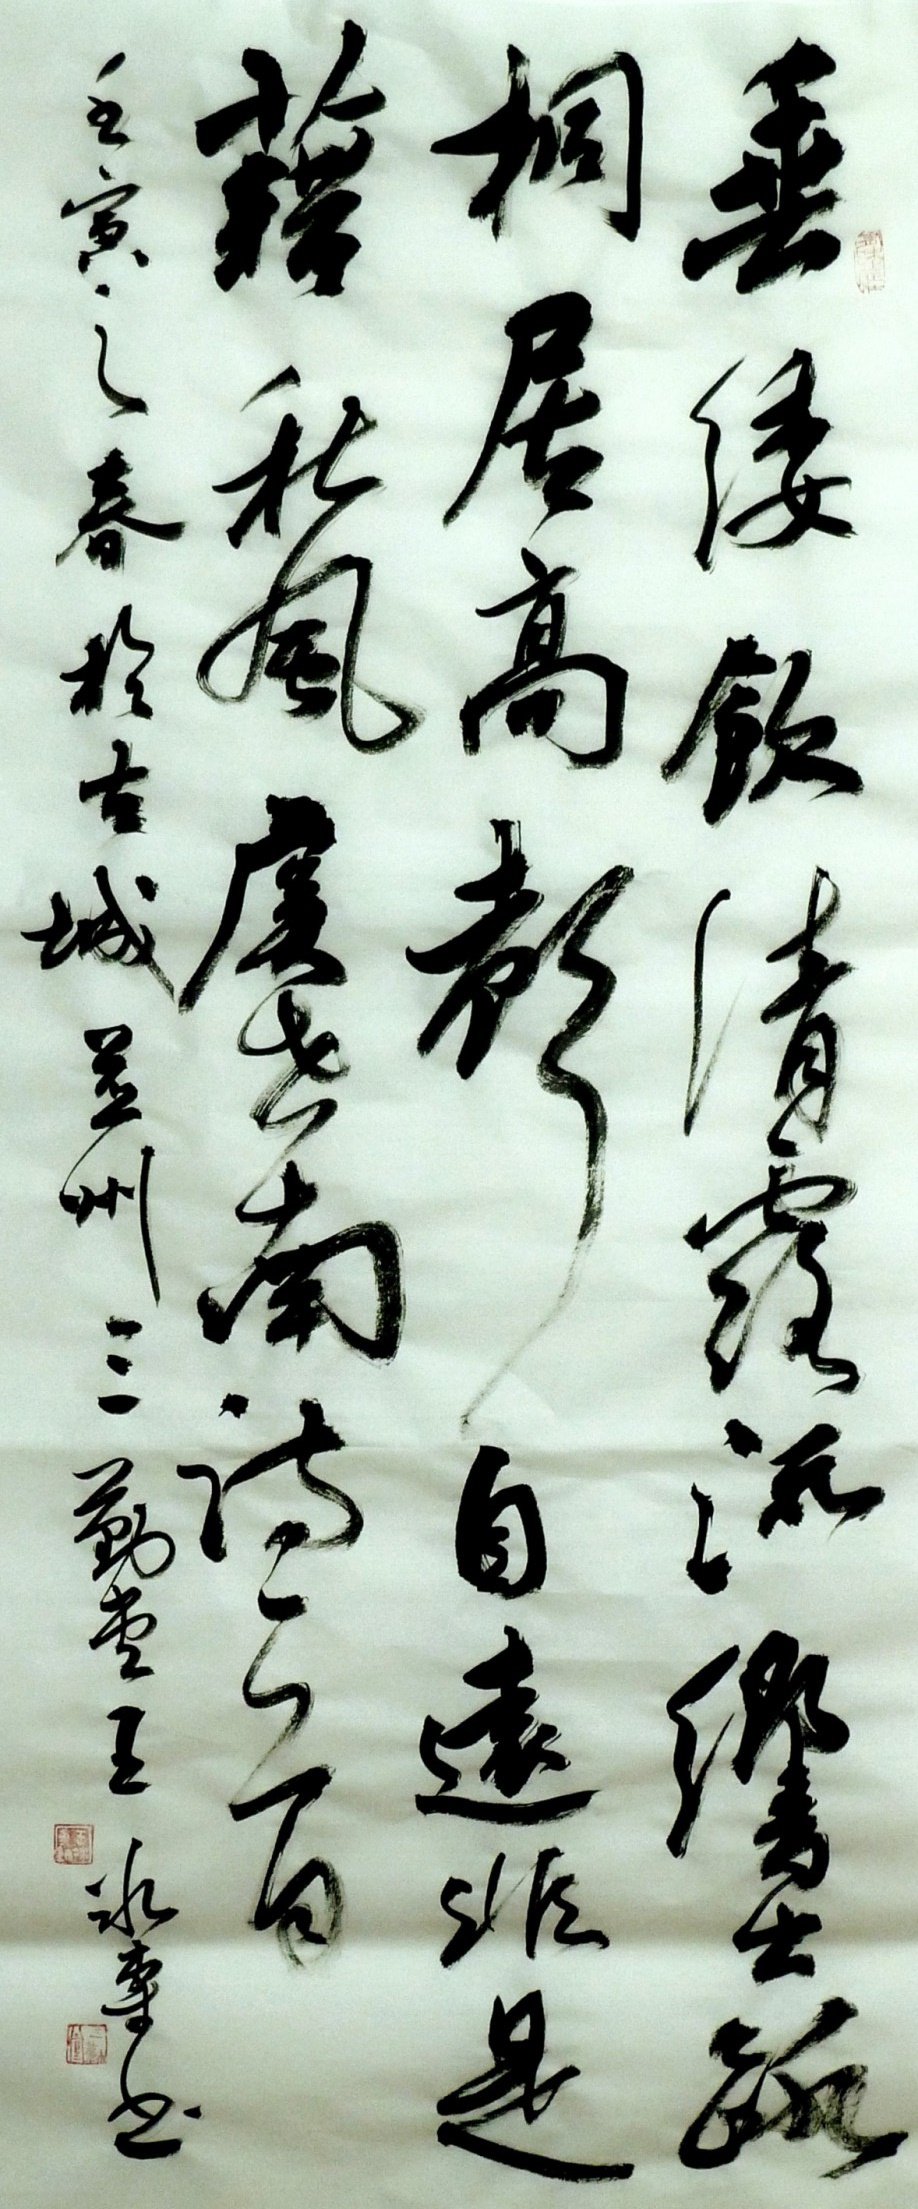 垂緌飲清露流響出疏
桐居高聲自遠非是
藉秋風虞世南詩一首
壬寅之春於古城並州三勤堂王冰書